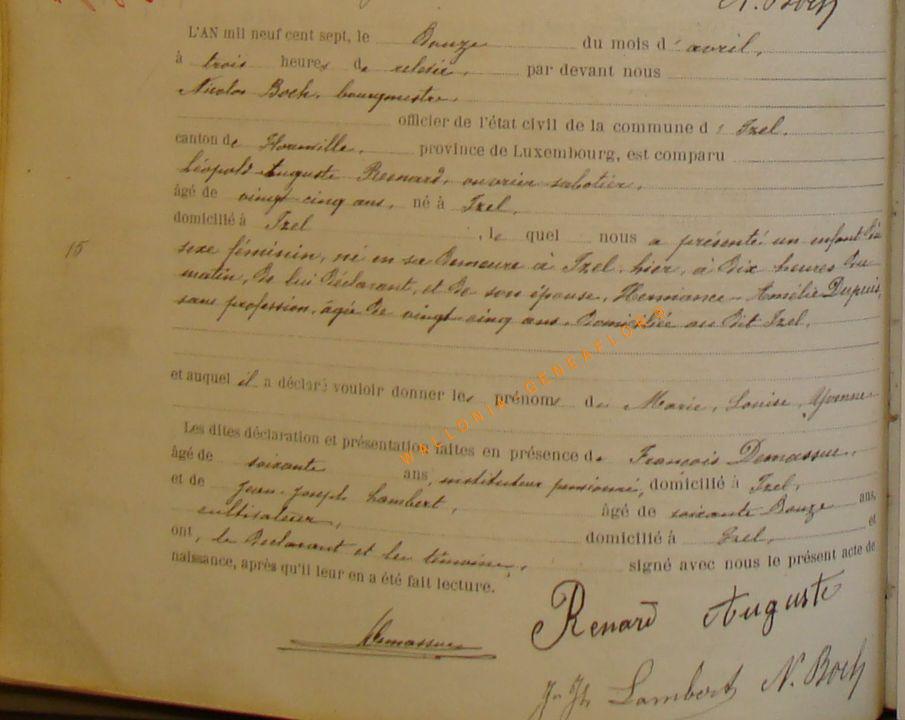 N. Boch
L'AN mil neuf cent sept, le Douze du mois d' avril,
à trois heures de relevée, par devant nous
Nicolas Boch, bourgmestre,
officier de l'état civil de la commune d' Izel,
canton de Florenville, province de Luxembourg, est comparu
Léopold Auguste Renard, ouvrier sabotier,
âgé de vingt cinq ans, né à Izel,
domicilié à Izel, le quel nous a présenté un enfant du
15
sexe féminin, né en sa demeure à Izel, hier, à dix heures du
matin, de lui Déclarant, et de son épouse, Hermance-Amélie Dupuis,
sans profession, âgée de vingt-cinq ans, domiciliée au dit Izel,
et auquel il a déclaré vouloir donner les prénoms de Marie, Louise, Yvonne
WALLONIA.GENEAFLORE
Les dites déclaration et présentation faites en présence de François Demasseur,
âgé de soixante ans, instituteur pensionné, domicilié à Izel,
et de Jean-Joseph Lambert, âgé de soixante Douze ans,
cultivateur, domicilié à Izel, et
ont, le Déclarant et les témoins, signé avec nous le présent acte de
naissance, après qu'il leur en a été fait lecture.
Renard Auguste
Jn Jh Lambert N. Boch